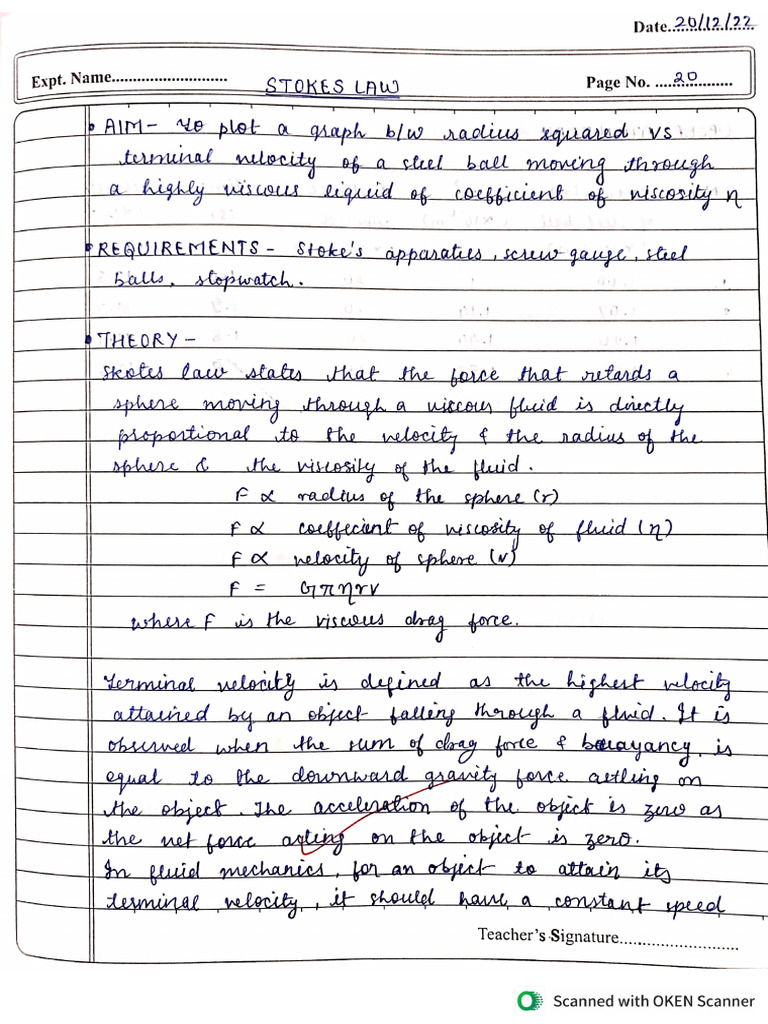 Date..20/12/22
Expt. Name............................
STOKES LAW
Page No. ....20..............
• AIM- To plot a graph b/w radius squared vs
terminal velocity of a steel ball moving through
a highly viscous liquid of coefficient of viscosity η
• REQUIREMENTS - Stoke's apparatus, screw gauge, steel
balls, stopwatch.
• THEORY -
Skotes law states that the force that retards a
sphere moving through a viscous fluid is directly
proportional to the velocity & the radius of the
sphere & the viscosity of the fluid.
F ∝ radius of the sphere (r)
F ∝ coeffecient of viscosity of fluid (η)
F ∝ velocity of sphere (v)
F = 6πηrv
where F is the viscous drag force.
Terminal velocity is defined as the highest velocity
attained by an object falling through a fluid. It is
observed when the sum of drag force & buoayancy is
equal to the downward gravity force actling on
the object. The acceleration of the object is zero as
the net force acting on the object is zero.
In fluid mechanics, for an object to attain its
terminal velocity, it should have a constant speed
Teacher's Signature.............................
Scanned with OKEN Scanner